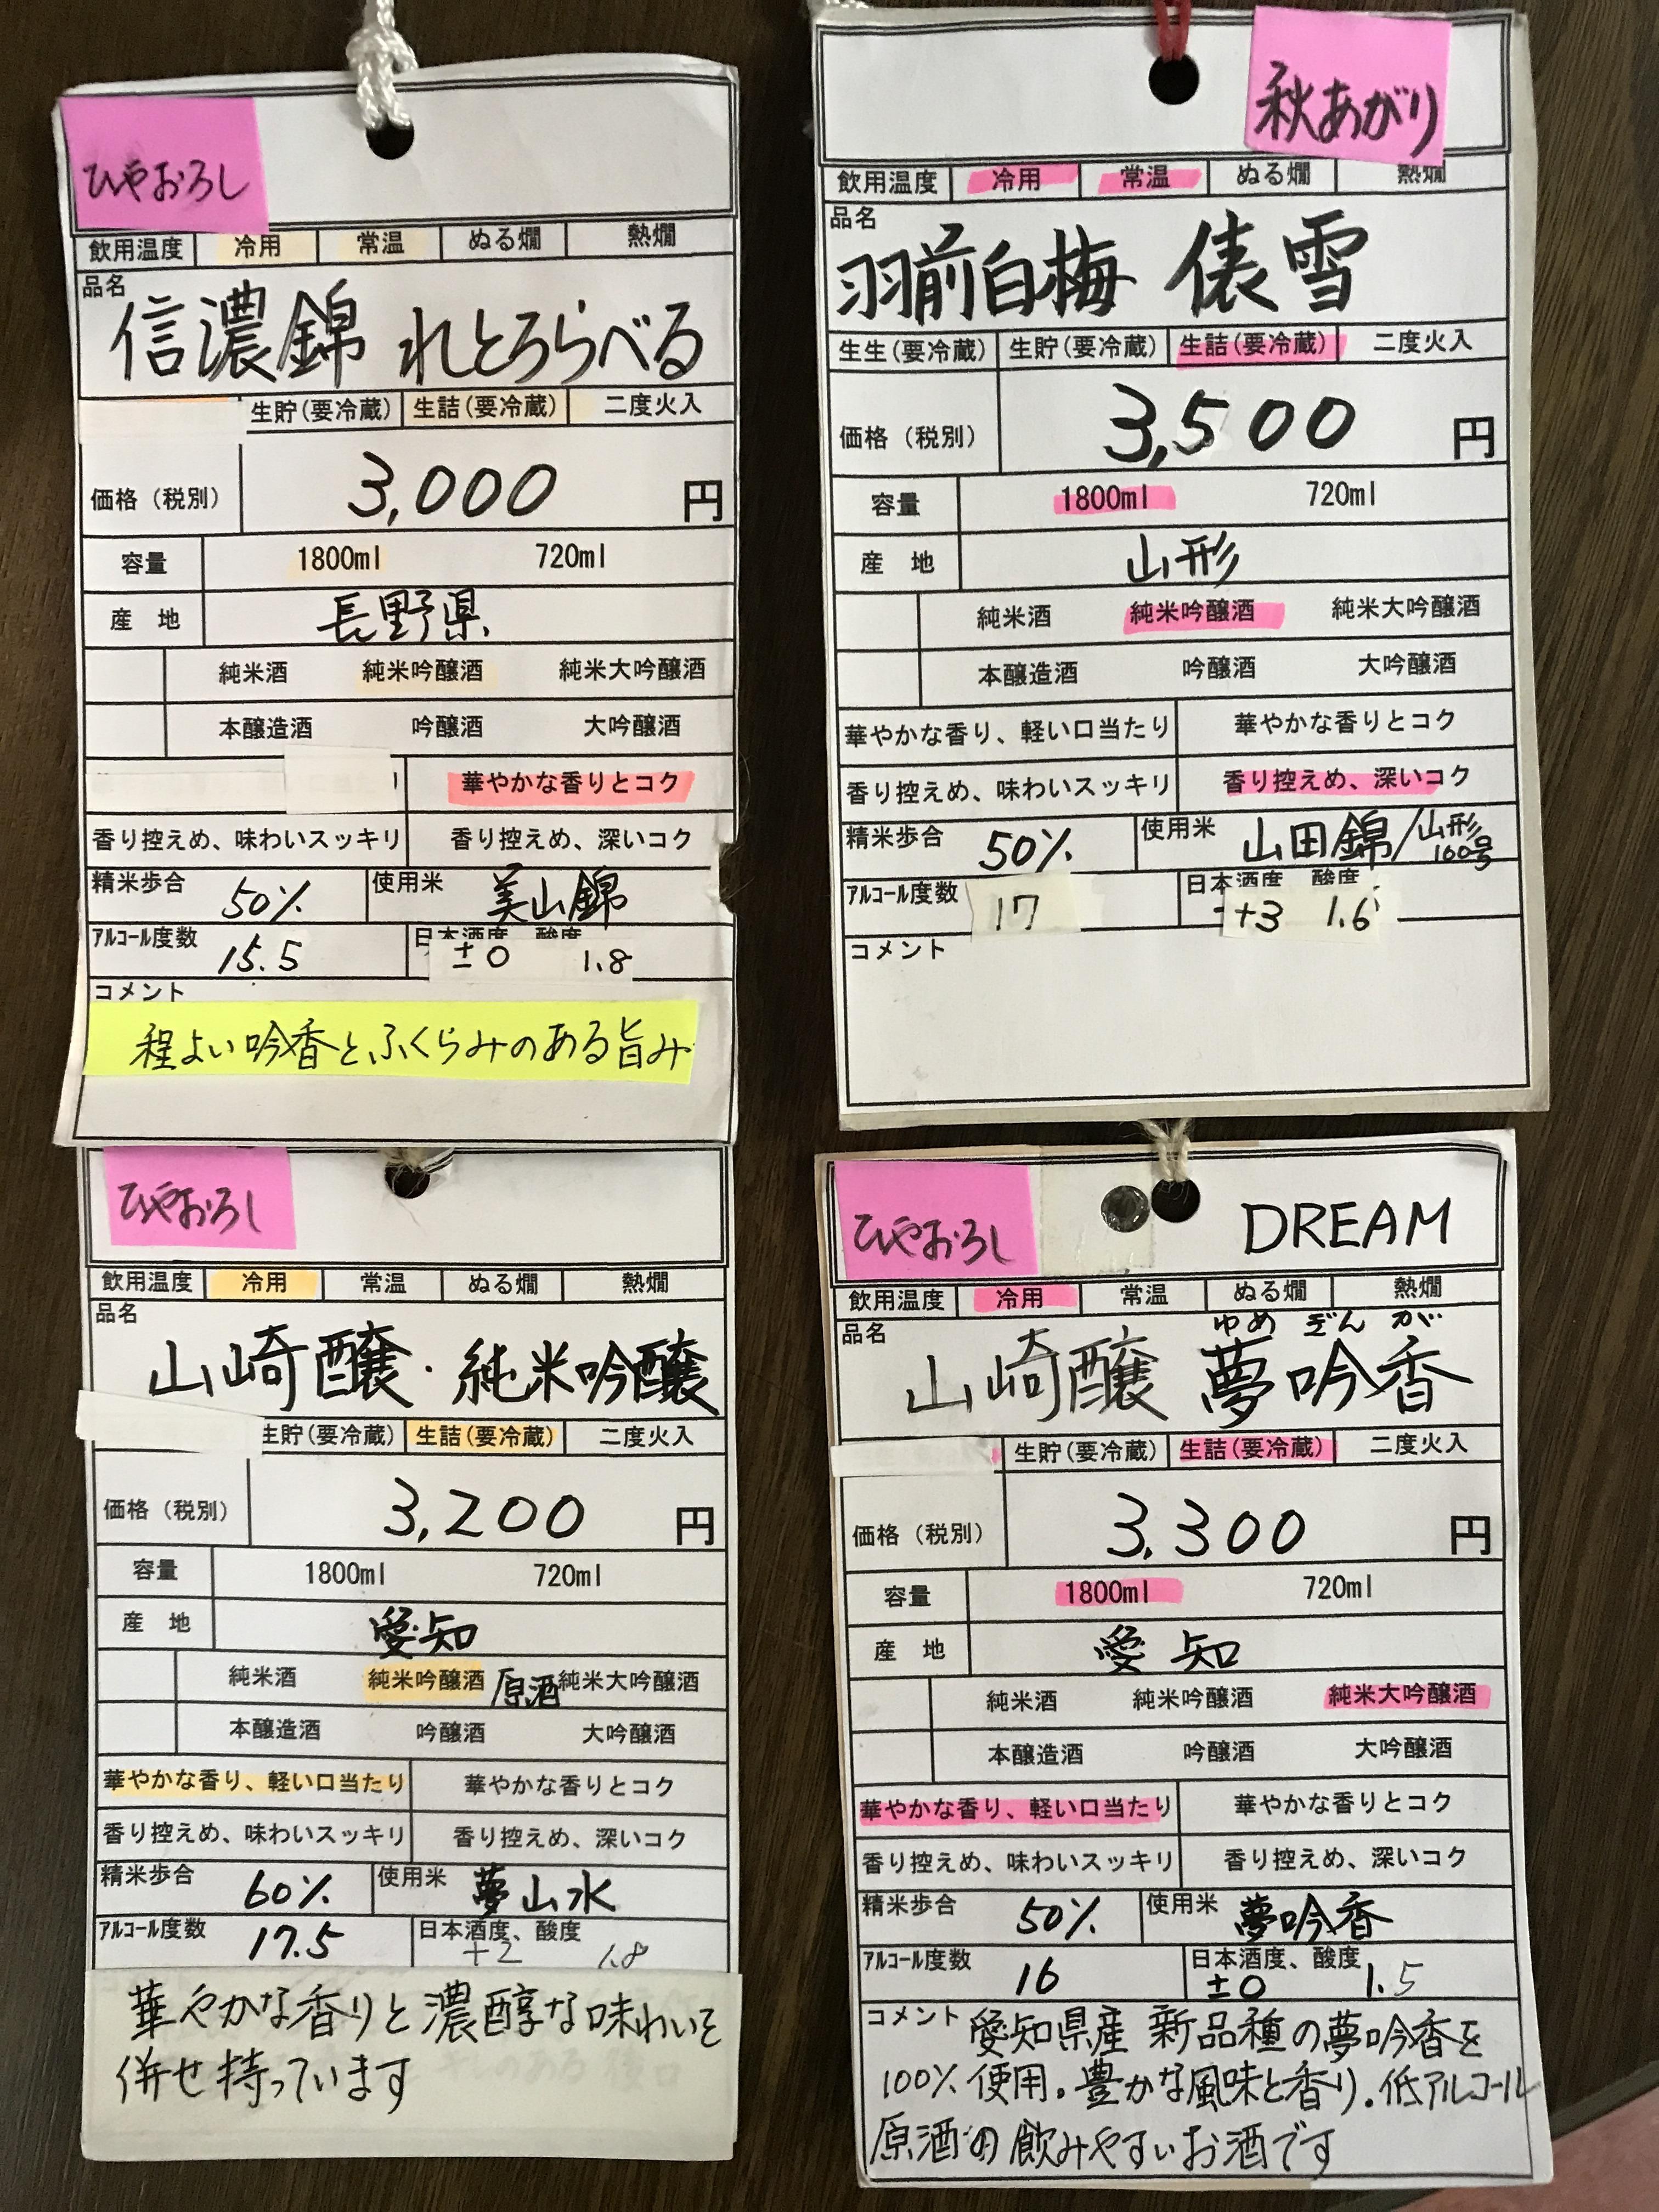 ひやおろし
飲用温度 冷用 常温 ぬる燗 熱燗
品名
信濃錦 れとろらべる
生貯(要冷蔵) 生詰(要冷蔵) 二度火入
価格(税別) 3,000 円
容量 1800ml 720ml
産 地 長野県
純米酒 純米吟醸酒 純米大吟醸酒
本醸造酒 吟醸酒 大吟醸酒
華やかな香りとコク
香り控えめ、味わいスッキリ 香り控えめ、深いコク
精米歩合 50% 使用米 美山錦
アルコール度数 15.5 日本酒度、酸度 ±0 1.8
コメント
程よい吟香とふくらみのある旨み
秋あがり
飲用温度 冷用 常温 ぬる燗 熱燗
品名
羽前白梅 俵雪
生生(要冷蔵) 生貯(要冷蔵) 生詰(要冷蔵) 二度火入
価格(税別) 3,500 円
容量 1800ml 720ml
産 地 山形
純米酒 純米吟醸酒 純米大吟醸酒
本醸造酒 吟醸酒 大吟醸酒
華やかな香り、軽い口当たり 華やかな香りとコク
香り控えめ、味わいスッキリ 香り控えめ、深いコク
精米歩合 50% 使用米 山田錦/山形100号
アルコール度数 17 日本酒度 酸度 +3 1.6
コメント
ひやおろし
飲用温度 冷用 常温 ぬる燗 熱燗
品名
山崎醸・純米吟醸
生貯(要冷蔵) 生詰(要冷蔵) 二度火入
価格(税別) 3,200 円
容量 1800ml 720ml
産 地 愛知
純米酒 純米吟醸酒 原酒 純米大吟醸酒
本醸造酒 吟醸酒 大吟醸酒
華やかな香り、軽い口当たり 華やかな香りとコク
香り控えめ、味わいスッキリ 香り控えめ、深いコク
精米歩合 60% 使用米 夢山水
アルコール度数 17.5 日本酒度、酸度 +2 1.8
華やかな香りと濃醇な味わいを
併せ持っています
ひやおろし DREAM
飲用温度 冷用 常温 ぬる燗 熱燗
品名 ゆめ ぎん が
山崎醸 夢吟香
生貯(要冷蔵) 生詰(要冷蔵) 二度火入
価格(税別) 3,300 円
容量 1800ml 720ml
産 地 愛知
純米酒 純米吟醸酒 純米大吟醸酒
本醸造酒 吟醸酒 大吟醸酒
華やかな香り、軽い口当たり 華やかな香りとコク
香り控えめ、味わいスッキリ 香り控えめ、深いコク
精米歩合 50% 使用米 夢吟香
アルコール度数 16 日本酒度、酸度 ±0 1.5
コメント 愛知県産 新品種の夢吟香を
100%使用。豊かな風味と香り。低アルコール
原酒の飲みやすいお酒です